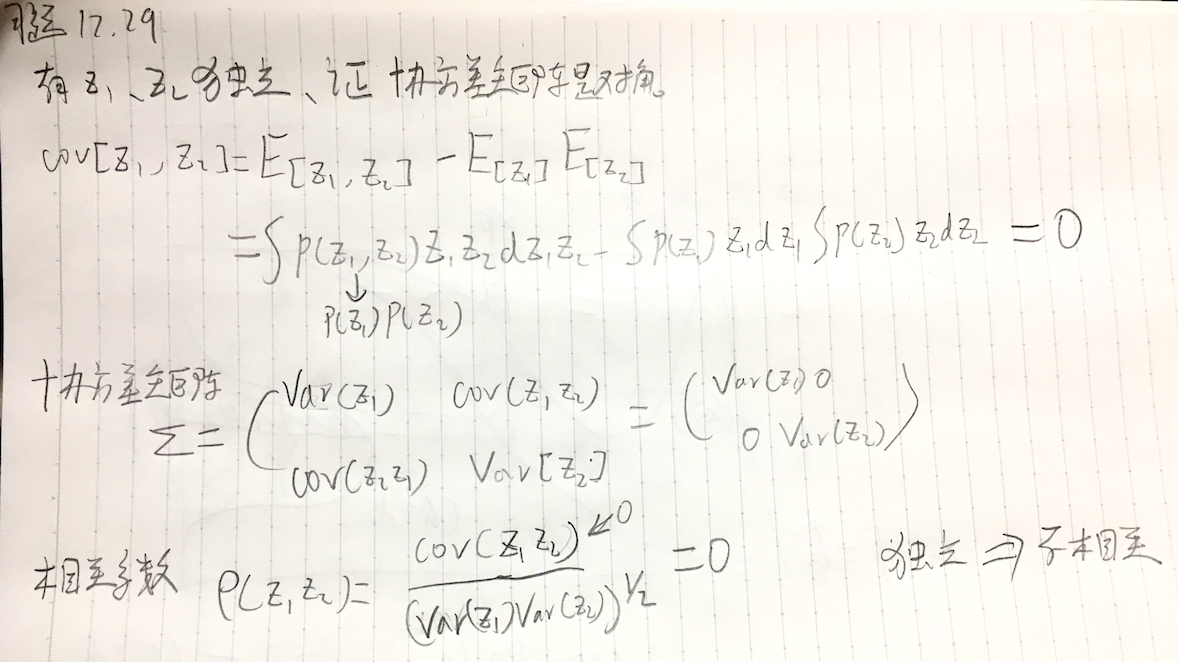 习题 12.29
有 z₁、z₂ 独立、证 协方差矩阵是对角。
cov[z₁, z₂] = E[z₁, z₂] - E[z₁] E[z₂]
= ∫ p(z₁, z₂) z₁ z₂ dz₁ z₂ - ∫ p(z₁) z₁ dz₁ ∫ p(z₂) z₂ dz₂ = 0
↓
p(z₁) p(z₂)
协方差矩阵
Σ = ( Var(z₁) cov(z₁ z₂) = ( Var(z₁) 0
cov(z₂ z₁) Var[z₂] 0 Var(z₂) )
相关系数 ρ(z₁ z₂) = cov(z₁ z₂) ↙0 / (Var(z₁) Var(z₂))^1/2 = 0 独立 ⇒ 不相关